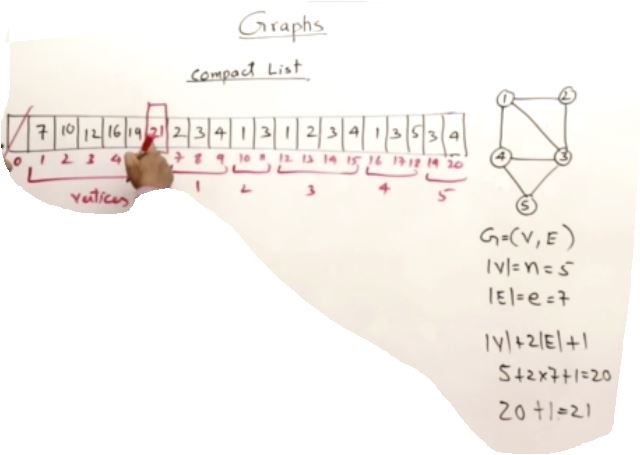 Graphs
Compact List
7 10 12 16 19 21 2 3 4 1 3 1 2 3 4 1 3 5 3 4
0 1 2 3 4 7 8 9 10 11 12 13 14 15 16 17 18 19 20
vertices 1 2 3 4 5
1 2
4 3
5
G=(V,E)
|V|=n=5
|E|=e=7
|V|+2|E|+1
5+2×7+1=20
20+1=21